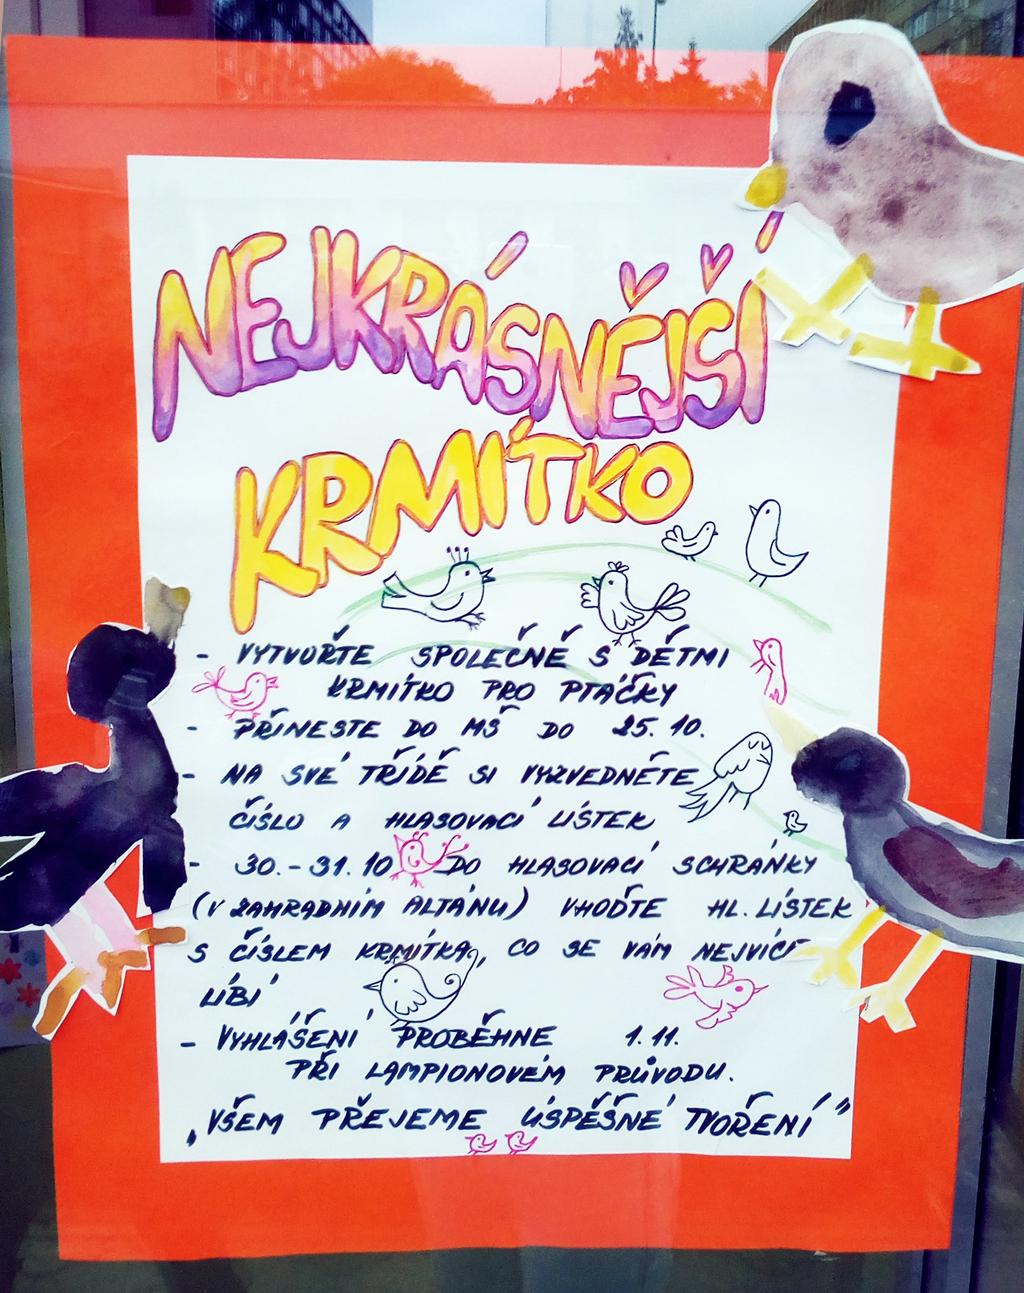 NEJKRÁSNĚJŠÍ
KRMÍTKO
- VYTVOŘTE SPOLEČNĚ S DĚTMI
KRMÍTKO PRO PTÁČKY
- PŘINESTE DO MŠ DO 25.10.
- NA SVÉ TŘÍDĚ SI VYZVEDNĚTE
ČÍSLO A HLASOVACÍ LÍSTEK
- 30.-31.10 DO HLASOVACÍ SCHRÁNKY
(V ZAHRADNÍM ALTÁNU) VHOĎTE HL. LÍSTEK
S ČÍSLEM KRMÍTKA, CO SE VÁM NEJVÍCE
LÍBÍ
- VYHLÁŠENÍ PROBĚHNE 1.11.
PŘI LAMPIONOVÉM PRŮVODU.
„VŠEM PŘEJEME ÚSPĚŠNÉ TVOŘENÍ"